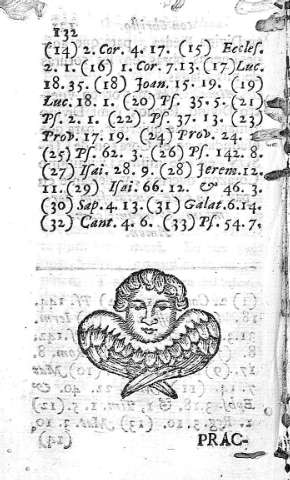 132
(14) 2. Cor. 4. 17. (15) Eccles.
2. 1. (16) 1. Cor. 7.13. (17) Luc.
18. 35. (18) Joan. 15. 19. (19)
Luc. 18. 1. (20) Ps. 35. 5. (21)
Ps. 2. 1. (22) Ps. 37. 13. (23)
Prov. 17. 19. (24) Prov. 24.
(25) Ps. 62. 3. (26) Ps. 142. 8.
(27) Isai. 28. 9. (28) Jerem. 12.
11. (29) Isai. 66. 12. & 46. 3.
(30) Sap. 4. 13. (31) Galat. 6.14.
(32) Cant. 4. 6. (33) Ps. 54. 7.
PRAC-